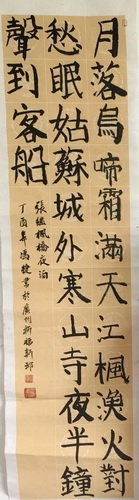 月落烏啼霜滿天江楓漁火對
愁眠姑蘇城外寒山寺夜半鐘
聲到客船
張繼楓橋夜泊
丁酉年馮捷書於廣州祈福新邨